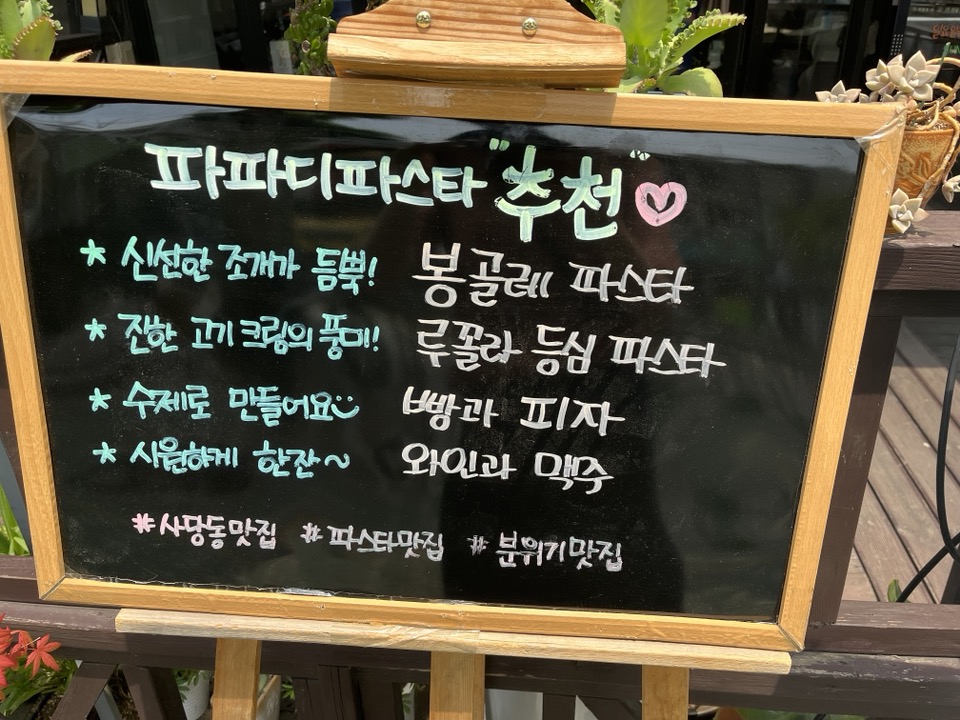 파파디파스타 "추천" ♡
* 신선한 조개가 듬뿍! 봉골레 파스타
* 진한 고기 크림의 풍미! 루꼴라 등심 파스타
* 수제로 만들어요 빵과 피자
* 시원하게 한잔~ 와인과 맥주
#사당동맛집 #파스타맛집 #분위기맛집